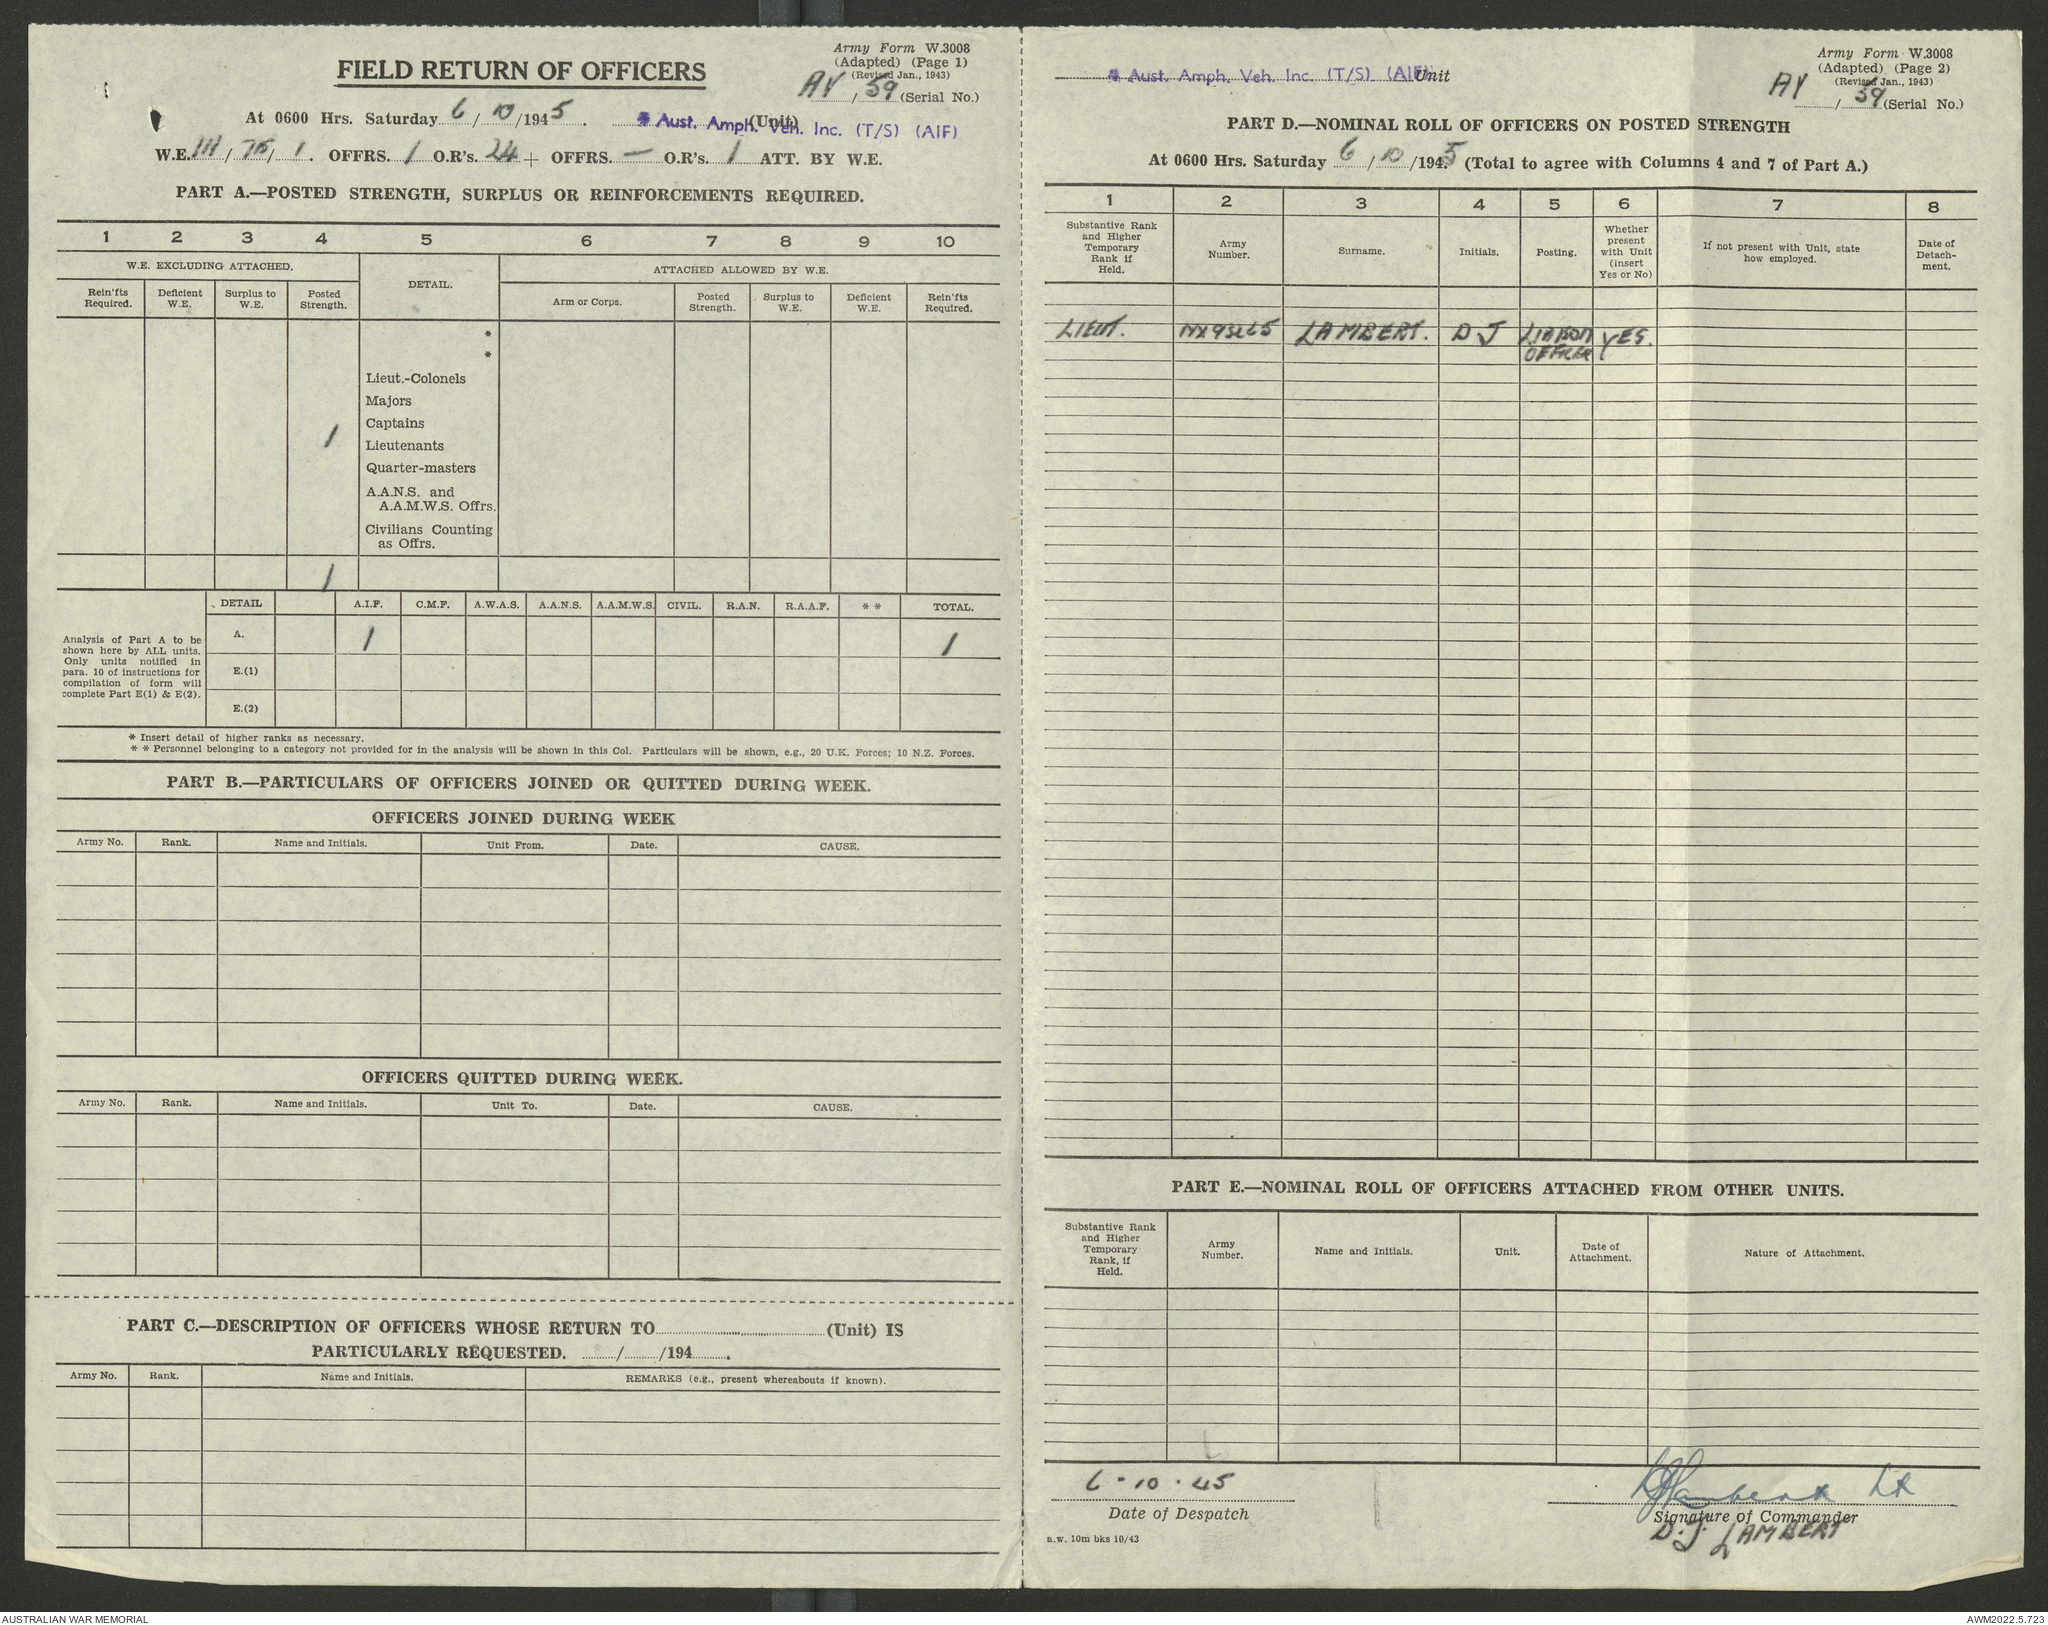 Army Form W.3008
(Adapted) (Page 1)
(Revised Jan., 1943)
AY / 59 (Serial No.)
FIELD RETURN OF OFFICERS
At 0600 Hrs. Saturday 6 / 10 /1945 . (Unit)
Aust. Amph. Veh. Inc. (T/S) (AIF)
W.E. III / / 1 . OFFRS. 1 O.R's. 24 + OFFRS. — O.R's. 1 ATT. BY W.E.
PART A.—POSTED STRENGTH, SURPLUS OR REINFORCEMENTS REQUIRED.
1 2 3 4 5 6 7 8 9 10
W.E. EXCLUDING ATTACHED. DETAIL. ATTACHED ALLOWED BY W.E.
Rein'fts Required. Deficient W.E. Surplus to W.E. Posted Strength. Arm or Corps. Posted Strength. Surplus to W.E. Deficient W.E. Rein'fts Required.
*
*
Lieut.-Colonels
Majors
Captains
1 Lieutenants
Quarter-masters
A.A.N.S. and
A.A.M.W.S. Offrs.
Civilians Counting
as Offrs.
1
DETAIL A.I.F. C.M.F. A.W.A.S. A.A.N.S. A.A.M.W.S. CIVIL. R.A.N. R.A.A.F. * * TOTAL.
Analysis of Part A to be
shown here by ALL units.
Only units notified in
para. 10 of instructions for
compilation of form will
complete Part E(1) & E(2).
A. 1 1
E.(1)
E.(2)
* Insert detail of higher ranks as necessary.
* * Personnel belonging to a category not provided for in the analysis will be shown in this Col. Particulars will be shown, e.g., 20 U.K. Forces; 10 N.Z. Forces.
PART B.—PARTICULARS OF OFFICERS JOINED OR QUITTED DURING WEEK.
OFFICERS JOINED DURING WEEK
Army No. Rank. Name and Initials. Unit From. Date. CAUSE.
OFFICERS QUITTED DURING WEEK.
Army No. Rank. Name and Initials. Unit To. Date. CAUSE.
PART C.—DESCRIPTION OF OFFICERS WHOSE RETURN TO (Unit) IS
PARTICULARLY REQUESTED. / /194 .
Army No. Rank. Name and Initials. REMARKS (e.g., present whereabouts if known).
Army Form W.3008
(Adapted) (Page 2)
(Revised Jan., 1943)
AY / 59 (Serial No.)
Aust. Amph. Veh. Inc. (T/S) (AIF) Unit
PART D.—NOMINAL ROLL OF OFFICERS ON POSTED STRENGTH
At 0600 Hrs. Saturday 6 / 10 /1945 (Total to agree with Columns 4 and 7 of Part A.)
1 2 3 4 5 6 7 8
Substantive Rank and Higher Temporary Rank if Held. Army Number. Surname. Initials. Posting. Whether present with Unit (insert Yes or No) If not present with Unit, state how employed. Date of Detach-ment.
LIEUT. LAMBERT. D J LIAISON OFFICER YES.
PART E.—NOMINAL ROLL OF OFFICERS ATTACHED FROM OTHER UNITS.
Substantive Rank and Higher Temporary Rank, if Held. Army Number. Name and Initials. Unit. Date of Attachment. Nature of Attachment.
6 - 10 - 45
Date of Despatch
DJLambert Lt
Signature of Commander
D. J. LAMBERT
a.w. 10m bks 10/43
AUSTRALIAN WAR MEMORIAL
AWM2022.5.723